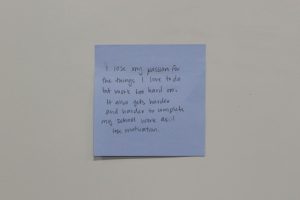 I lose my passion for
the things I love to do
but work too hard on.
It also gets harder
and harder to complete
my school work as I
lose motivation.